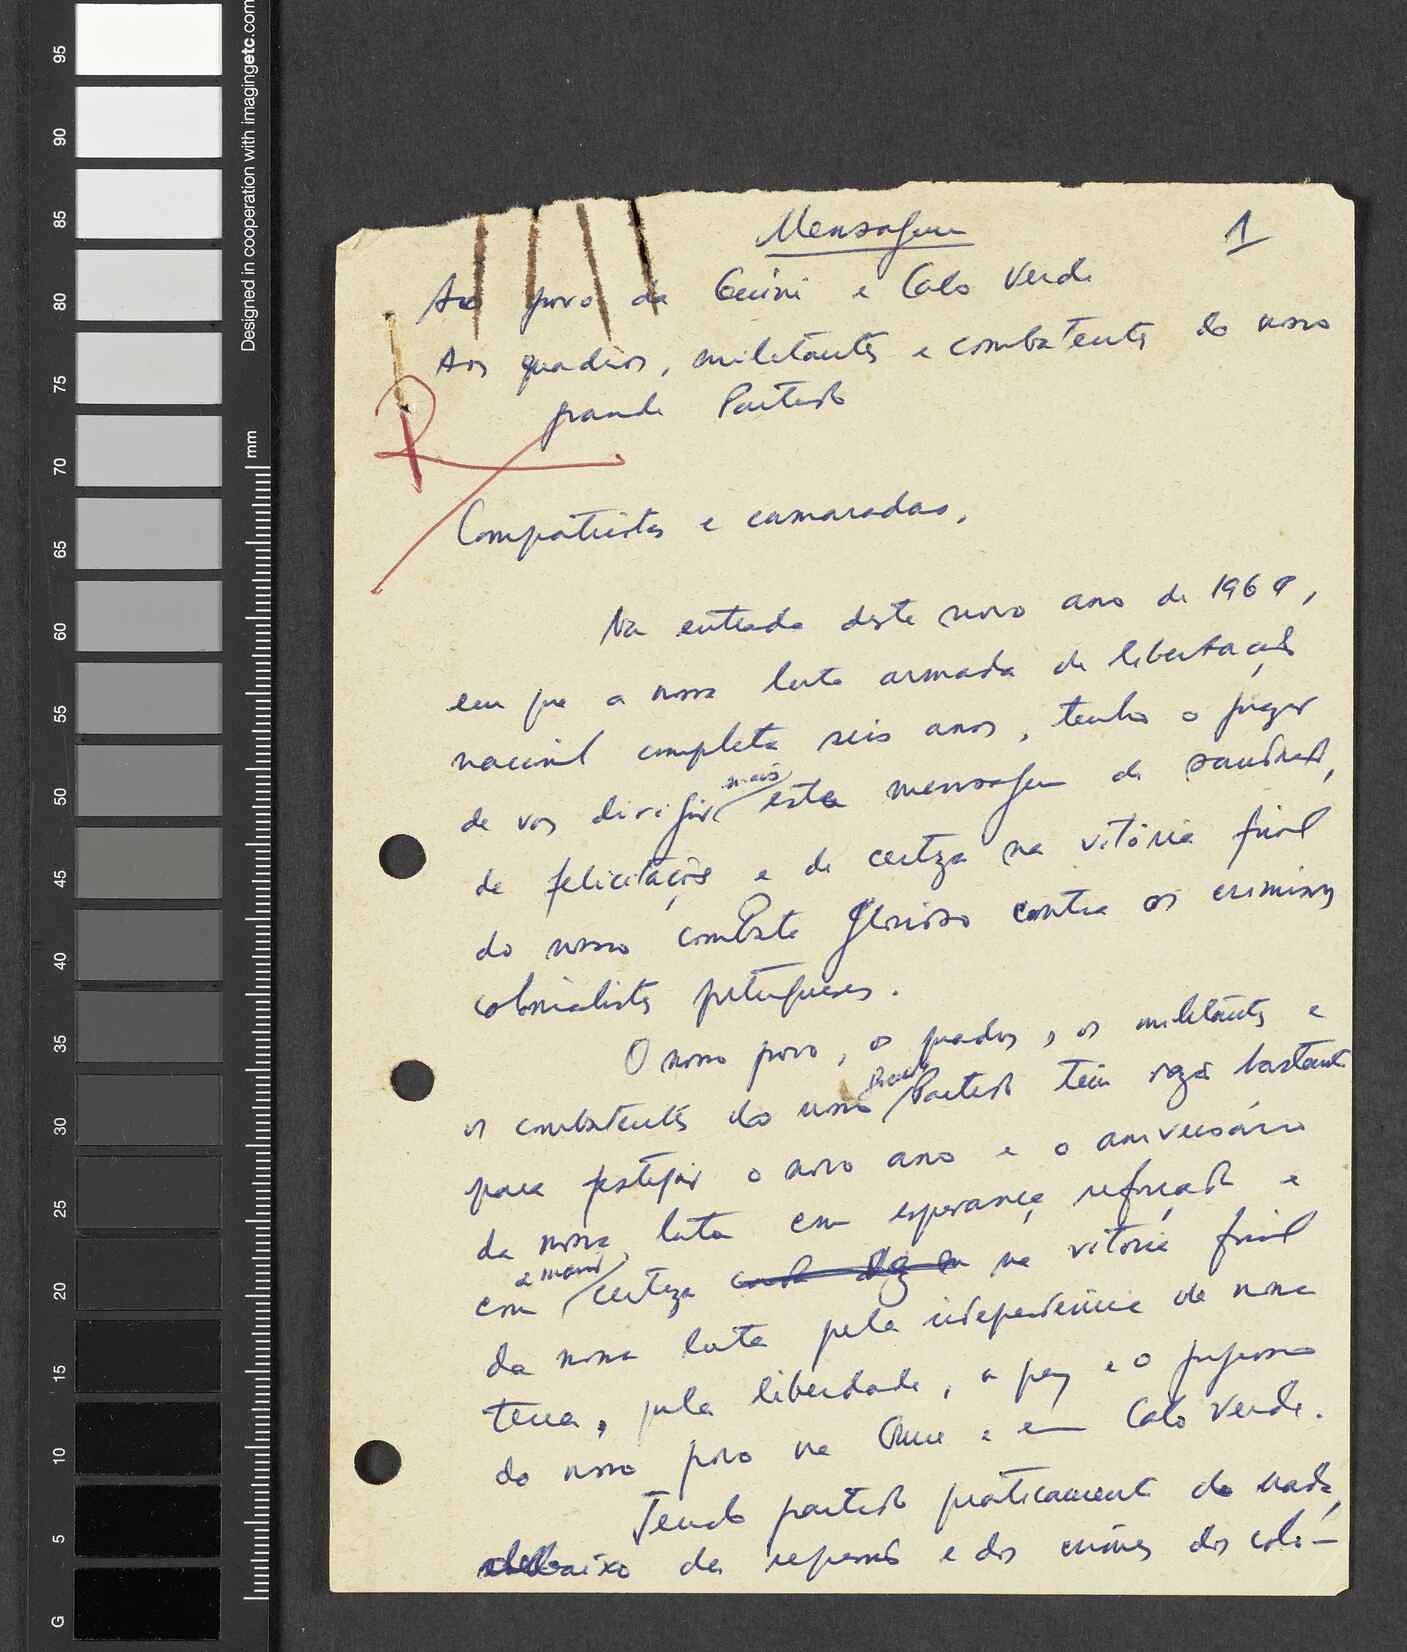 Mensagem
1
Ao povo da Guiné e Cabo Verde
Aos quadros, militantes e combatentes do nosso
grande Partido
R
Compatriotas e camaradas,
Na entrada deste novo ano de 1969,
em que a nossa luta armada de libertação
nacional completa seis anos, tenho o prazer
de vos dirigir mais esta mensagem de saudades,
de felicitações e de certeza na vitória final
do nosso combate glorioso contra os criminosos
colonialistas portugueses.
O nosso povo, os quadros, os militantes e
os combatentes do nosso grande Partido têm razão bastante
para festejar o novo ano e o aniversário
da nossa luta com esperança reforçada e
com a maior certeza na vitória final
da nossa luta pela independência da nossa
terra, pela liberdade, a paz e o progresso
do nosso povo na Guiné e em Cabo Verde.
Tendo partido praticamente do nada,
debaixo da repressão e dos crimes dos colo-
Designed in cooperation with imagingetc.com
mm
95
90
85
80
75
70
65
60
55
50
45
40
35
30
25
20
15
10
5
G